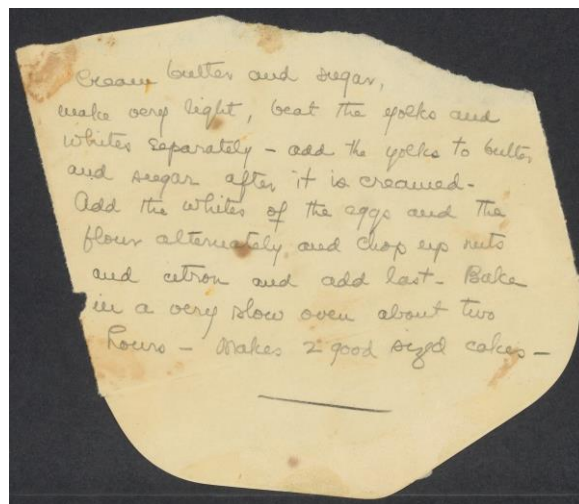 Cream butter and sugar,
make very light, beat the yolks and
whites separately - add the yolks to butter
and sugar after it is creamed -
Add the whites of the eggs and the
flour alternately and chop up nuts
and citron and add last - Bake
in a very slow oven about two
hours - Makes 2 good sized cakes -